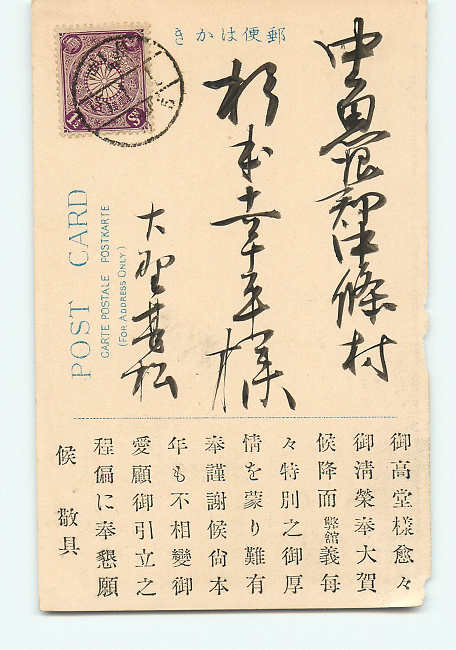 郵便はかき
中魚沼郡中條村
杉本幸平様
大野甚松
POST CARD
CARTE POSTALE POSTKARTE
(FOR ADDRESS ONLY)
御高堂樣愈々
御淸榮奉大賀
候降而弊舘義每
々特別之御厚
情を蒙り難有
奉謹謝候尙本
年も不相變御
愛顧御引立之
程偏に奉懇願
候 敬具